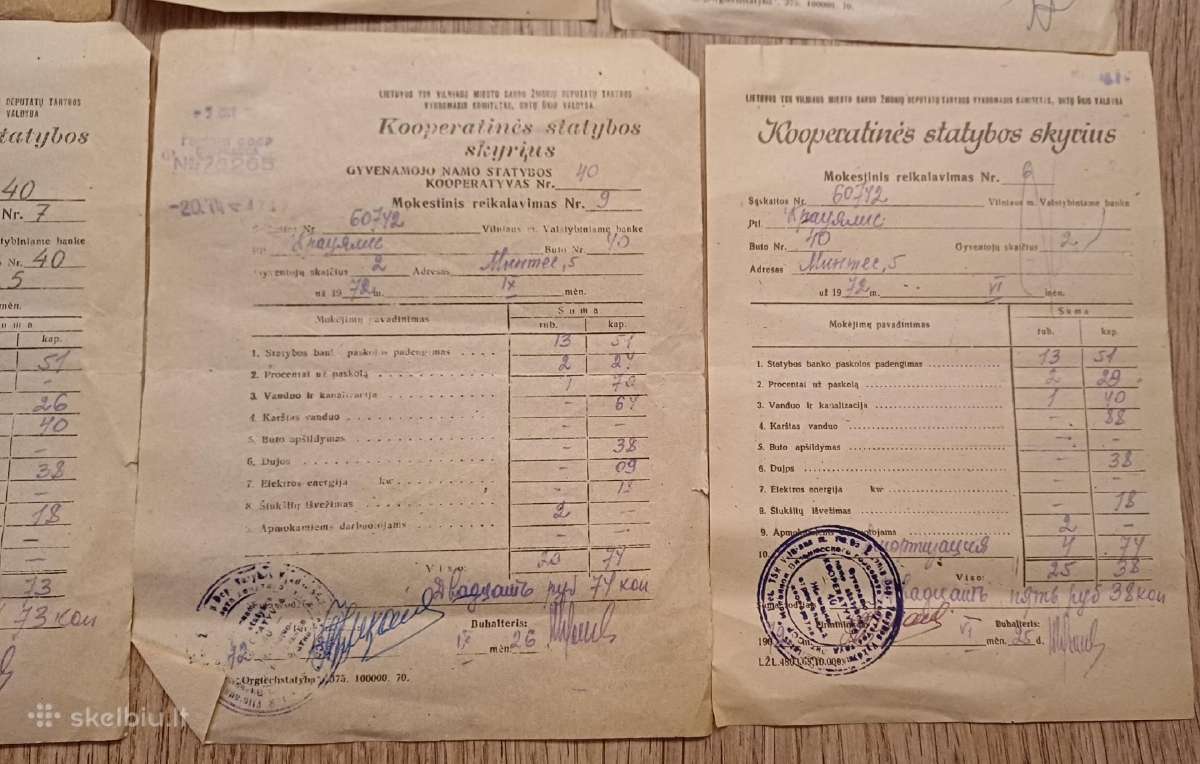 "Orgtechstatyba". 375. 100000. 70.
DEPUTATŲ TARYBOS
VALDYBA
statybos
40
Nr. 7
Valstybiniame banke
Nr. 40
5
mėn.
Suma
kap.
51
-
26
40
-
38
-
18
-
-
73
73 коп
LIETUVOS TSR VILNIAUS MIESTO DARBO ŽMONIŲ DEPUTATŲ TARYBOS
VYKDOMASIS KOMITETAS, BUTŲ ŪKIO VALDYBA
Kooperatinės statybos
skyrius
GYVENAMOJO NAMO STATYBOS
KOOPERATYVAS Nr. 40
Mokestinis reikalavimas Nr. 9
Sąskaitos Nr. 60742 Vilniaus m. Valstybiniame banke
Buto Nr. 40
Gyventojų skaičius 2 Adresas Минтес, 5
už 1972 m. IX mėn.
Mokėjimų pavadinimas Suma
rub. kap.
1. Statybos banko paskolos padengimas 13 51
2. Procentai už paskolą 2 27
3. Vanduo ir kanalizacija 1 70
4. Karštas vanduo - 67
5. Buto apšildymas - -
6. Dujos - 38
7. Elektros energija kw - 09
8. Šiukšlių išvežimas - 18
9. Apmokamiems darbuotojams 2 -
Viso: 20 77
Двадцать руб 77 коп
Buhalteris:
72 IX mėn. 26
"Orgtechstatyba". 375. 100000. 70.
LIETUVOS TSR VILNIAUS MIESTO DARBO ŽMONIŲ DEPUTATŲ TARYBOS VYKDOMASIS KOMITETAS, BUTŲ ŪKIO VALDYBA
Kooperatinės statybos skyrius
Mokestinis reikalavimas Nr. 6
Sąskaitos Nr. 60742 Vilniaus m. Valstybiniame banke
Pil.
Buto Nr. 40 Gyventojų skaičius 2
Adresas Минтес, 5
už 1972 m. VI mėn.
Mokėjimų pavadinimas Suma
rub. kap.
1. Statybos banko paskolos padengimas 13 51
2. Procentai už paskolą 2 29
3. Vanduo ir kanalizacija 1 40
4. Karštas vanduo - 88
5. Buto apšildymas - -
6. Dujos - 38
7. Elektros energija kw - -
8. Šiukšlių išvežimas - 18
9. 2 -
10. 4 74
Viso: 25 38
пять руб 38 коп
Buhalteris:
VI mėn. 25 d.
skelbiu.lt